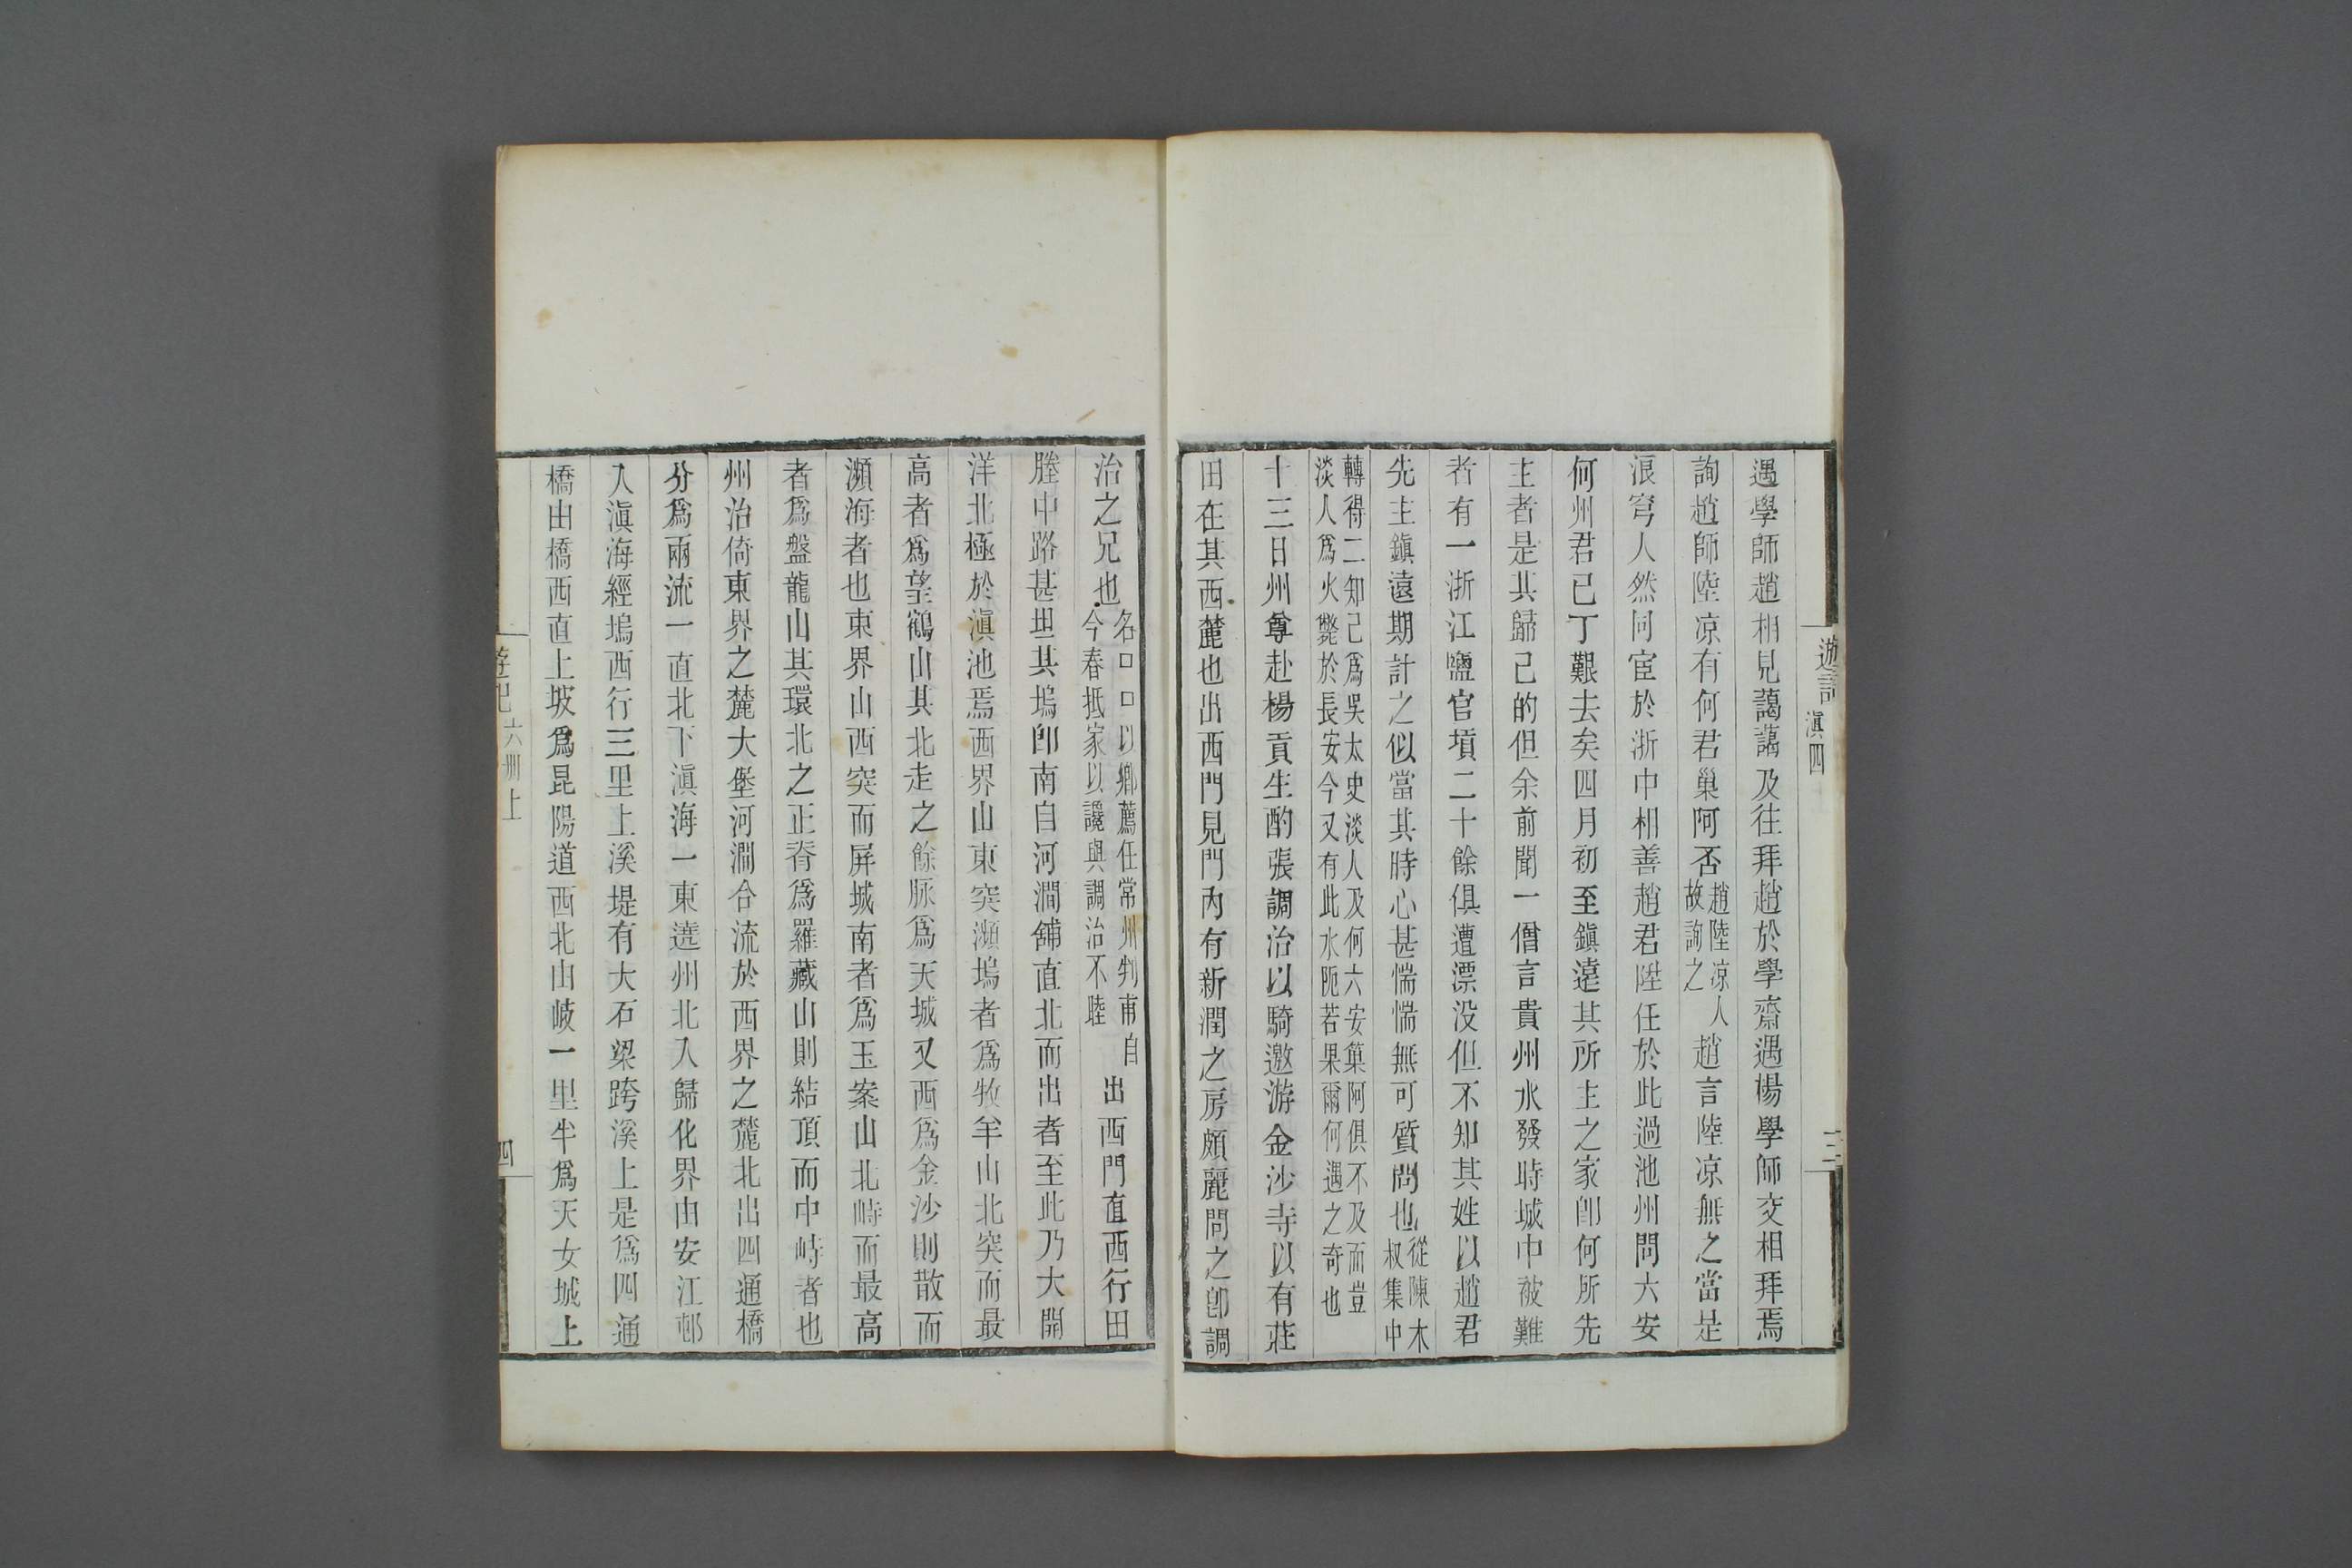 遊記
滇四
三
遇學師趙相見藹藹及往拜趙於學齋遇楊學師交相拜焉
詢趙師陸凉有何君巢阿否趙陸凉人故詢之趙言陸凉無之當是
浪穹人然同宦於浙中相善趙君陞任於此過池州問六安
何州君已丁艱去矣四月初至鎮遠其所主之家卽何所先
主者是其歸已的但余前聞一僧言貴州水發時城中被難
者有一浙江鹽官墳二十餘俱遭漂没但不知其姓以趙君
先主鎮遠期計之似當其時心甚惴惴無可質問也從陳木叔集中
轉得二知己爲吳太史淡人及何六安巢阿俱不及而豈
淡人爲火斃於長安今又有此水阨若果爾何遇之奇也
十三日州尊赴楊貢生酌張調治以騎邀游金沙寺以有莊
田在其西麓也出西門見門內有新潤之房頗麗問之卽調
治之兄也名口口以鄉薦任常州判甫自
今春抵家以讒與調治不睦
出西門直西行田
塍中路甚坦其塢卽南自河澗舖直北而出者至此乃大開
洋北極於滇池焉西界山東突瀕塢者爲牧羊山北突而最
高者爲望鶴山其北走之餘脉爲天城又西爲金沙則散而
瀕海者也東界山西突而屏城南者爲玉案山北峙而最高
者爲盤龍山其環北之正脊爲羅藏山則結頂而中峙者也
州治倚東界之麓大堡河澗合流於西界之麓北出四通橋
分爲兩流一直北下滇海一東遶州北入歸化界由安江邨
入滇海經塢西行三里上溪堤有大石梁跨溪上是爲四通
橋由橋西直上坡爲昆陽道西北由岐一里半爲天女城上
遊記
六册上
四